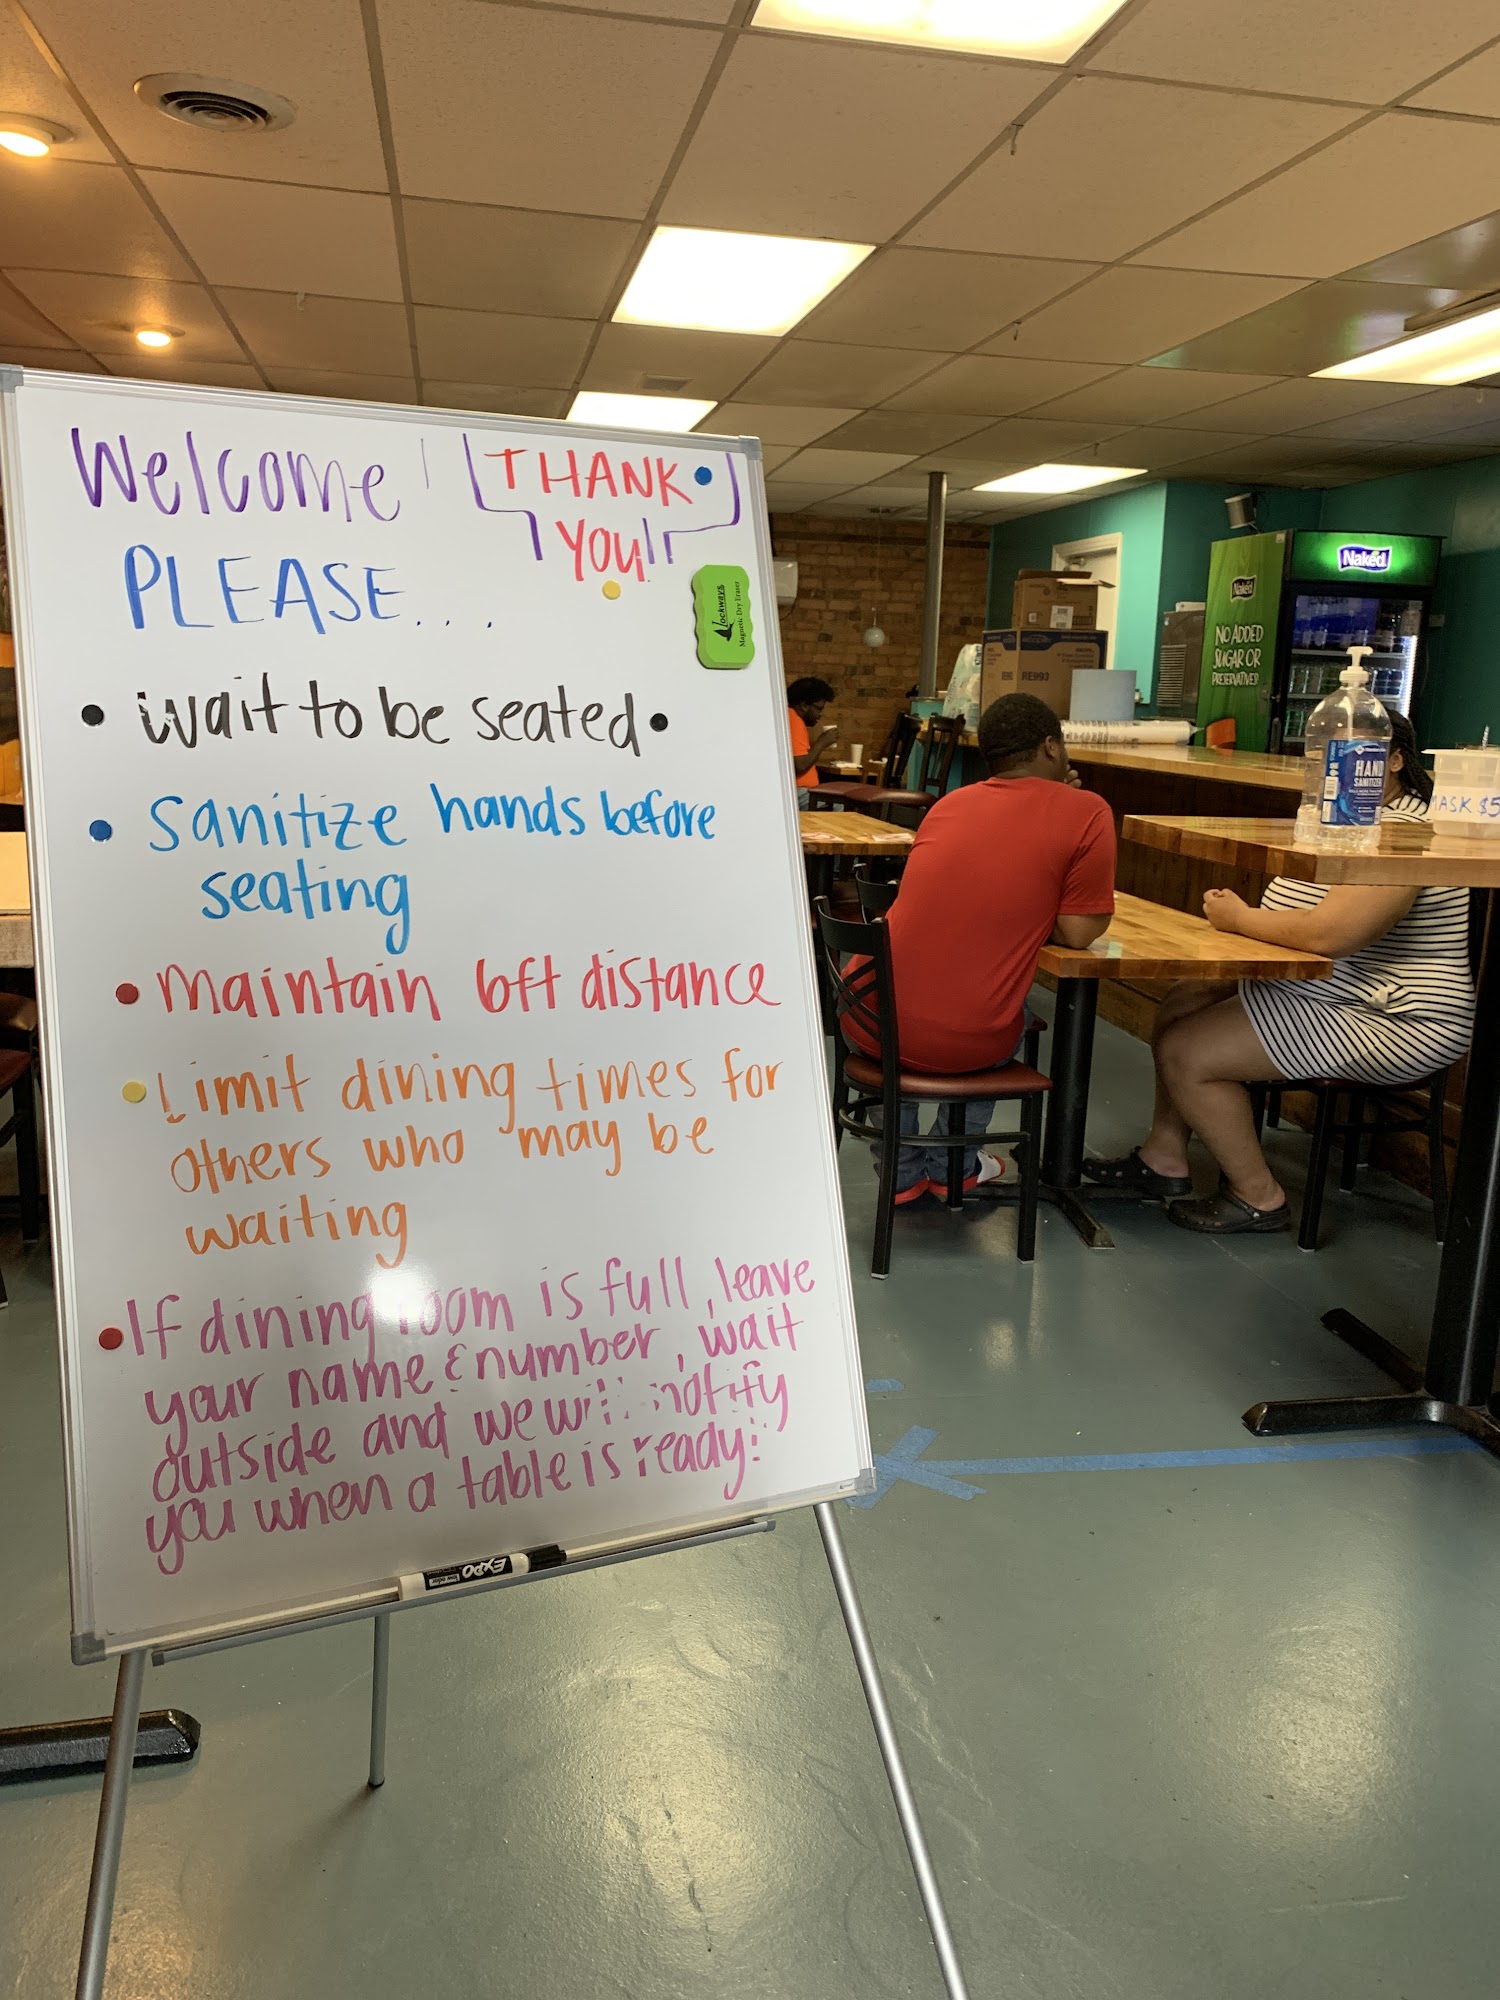 Welcome! THANK
YOU!!
PLEASE...
• Wait to be seated •
• Sanitize hands before
seating
• Maintain 6ft distance
• Limit dining times for
others who may be
waiting
• If dining room is full, leave
your name & number, wait
outside and we will notify
you when a table is ready!
Lockways
Magnetic Dry Eraser
EXPO
low odor
Naked
Naked
NO ADDED
SUGAR OR
PRESERVATIVES
RE993
HAND
SANITIZER
MASK $5